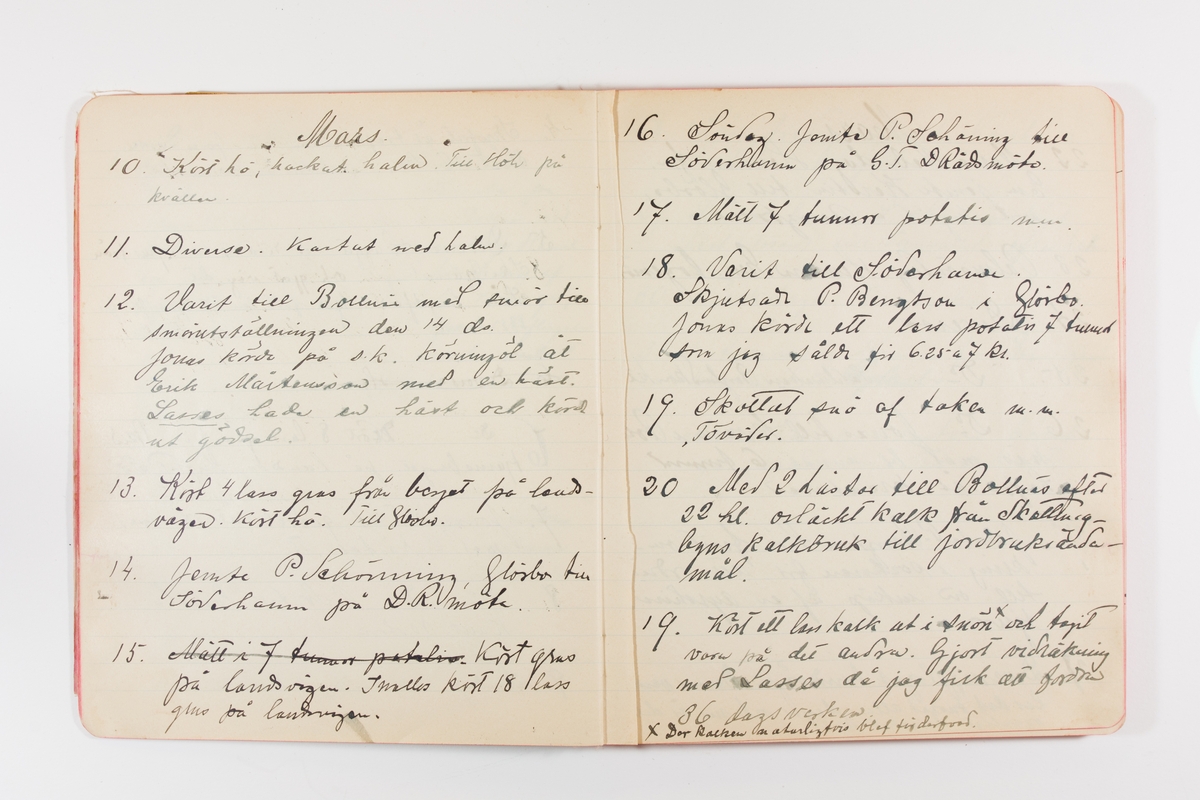 Mars.
10. Kört hö, hackat halm. Till Höh på
kvällen.
11. Diverse. Kastat ned halm.
12. Varit till Bollnäs med smör till
smörutställningen den 14 ds.
Jonas körde på s.k. körningöl åt
Erik Mårtensson med en häst.
Lasses hade en häst och körde
ut gödsel.
13. Kört 4 lass grus från berget på lands-
vägen. Kört hö. Till Glösbo.
14. Jemte P. Schönning, Glösbo till
Söderhamn på D.R. möte.
15. Mätt i 7 tunnor potatis. Kört grus
på landsvägen. Inalles kört 18 lass
grus på landsvägen.
16. Söndag. Jemte P. Schöning till
Söderhamn på G.T. DRådsmöte.
17. Mätt 7 tunnor potatis m.m.
18. Varit till Söderhamn.
Skjutsade P. Bengtson i Glösbo.
Jonas körde ett lass potatis 7 tunnor
som jag sålde för 6.25 a 7 kr.
19. Skottat snö af taken m.m.
Töväder.
20 Med 2 hästar till Bollnäs efter
22 hl. osläckt kalk från
byns kalkbruk till jordbruksända-
mål.
19. Kört ett lass kalk ut i snön x och tagit
vara på det andra. Gjort vidräkning
med Lasses då jag fick att fordra
36 dagsverken.
x Der kalken naturligtvis blef förderfvad.